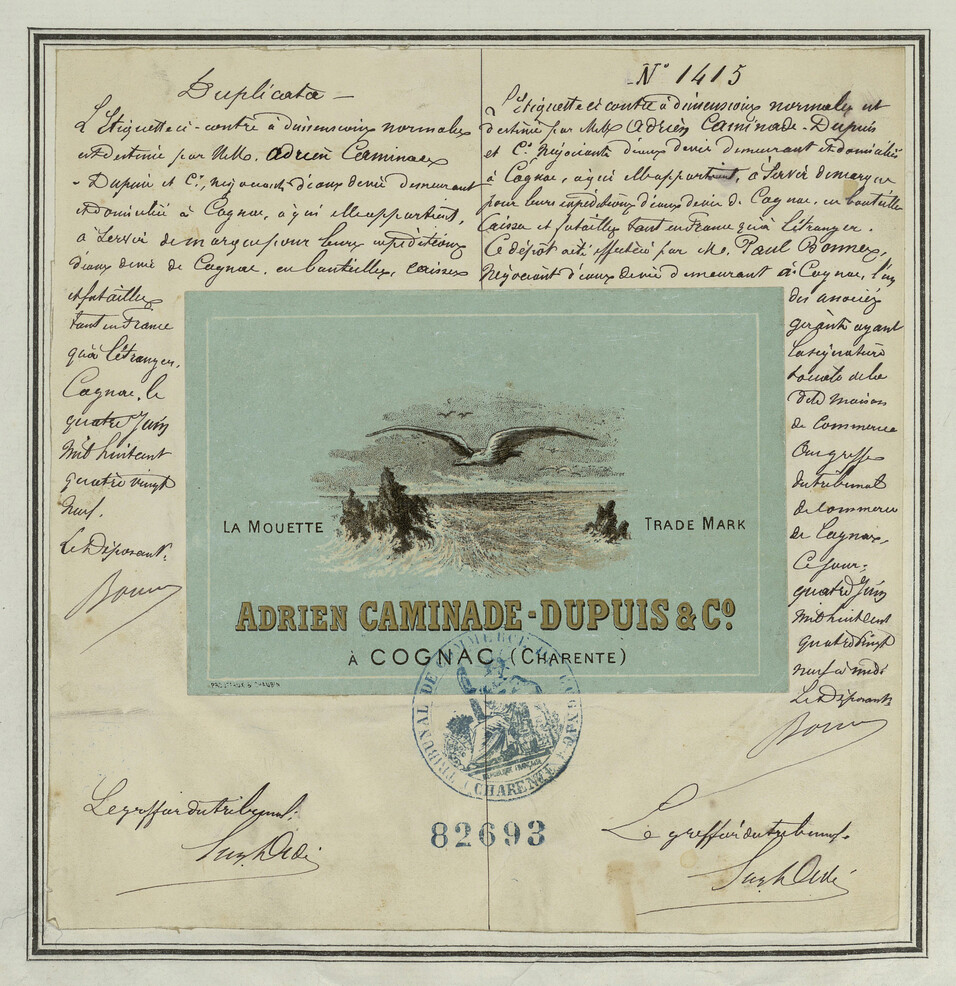 Duplicata —
L'Etiquette ci-contre à dimensions normales
est destinée par MM. Adrien Caminade
- Dupuis et Cie, négociants d'eaux de vie demeurant
et domiciliés à Cognac, à qui elle appartient,
à servir de marque pour leurs expéditions
d'eaux de vie de Cognac, en bouteilles, caisses
et futailles
tant en France
qu'à l'étranger.
Cognac, le
quatre Juin
mil huit cent
quatre vingt
neuf.
Le Déposant.
N° 1415
L'Etiquette ci contre à dimensions normales est
destinée par MM. Adrien Caminade-Dupuis
et Cie Négociants d'eaux de vie demeurant et domiciliés
à Cognac, à qui elle appartient, à servir de marque
pour leurs expéditions d'eaux de vie de Cognac, en bouteilles
caisses et futailles tant en France qu'à l'étranger.
Ce dépôt a été effectué par M. Paul
Négociant d'eaux de vie demeurant à Cognac, l'un
des associés
gérants ayant
la signature
sociale de la
dite maison
de Commerce
au greffe
du tribunal
de Commerce
de Cognac,
Ce jour:
quatre Juin
mil huit cent
quatre vingt
neuf à midi
Le Déposant:
LA MOUETTE
TRADE MARK
ADRIEN CAMINADE-DUPUIS & Co.
À COGNAC, (CHARENTE)
TRIBUNAL DE COMMERCE DE COGNAC
RÉPUBLIQUE FRANÇAISE
(CHARENTE)
82693
Le greffier du tribunal.
Le greffier du tribunal.